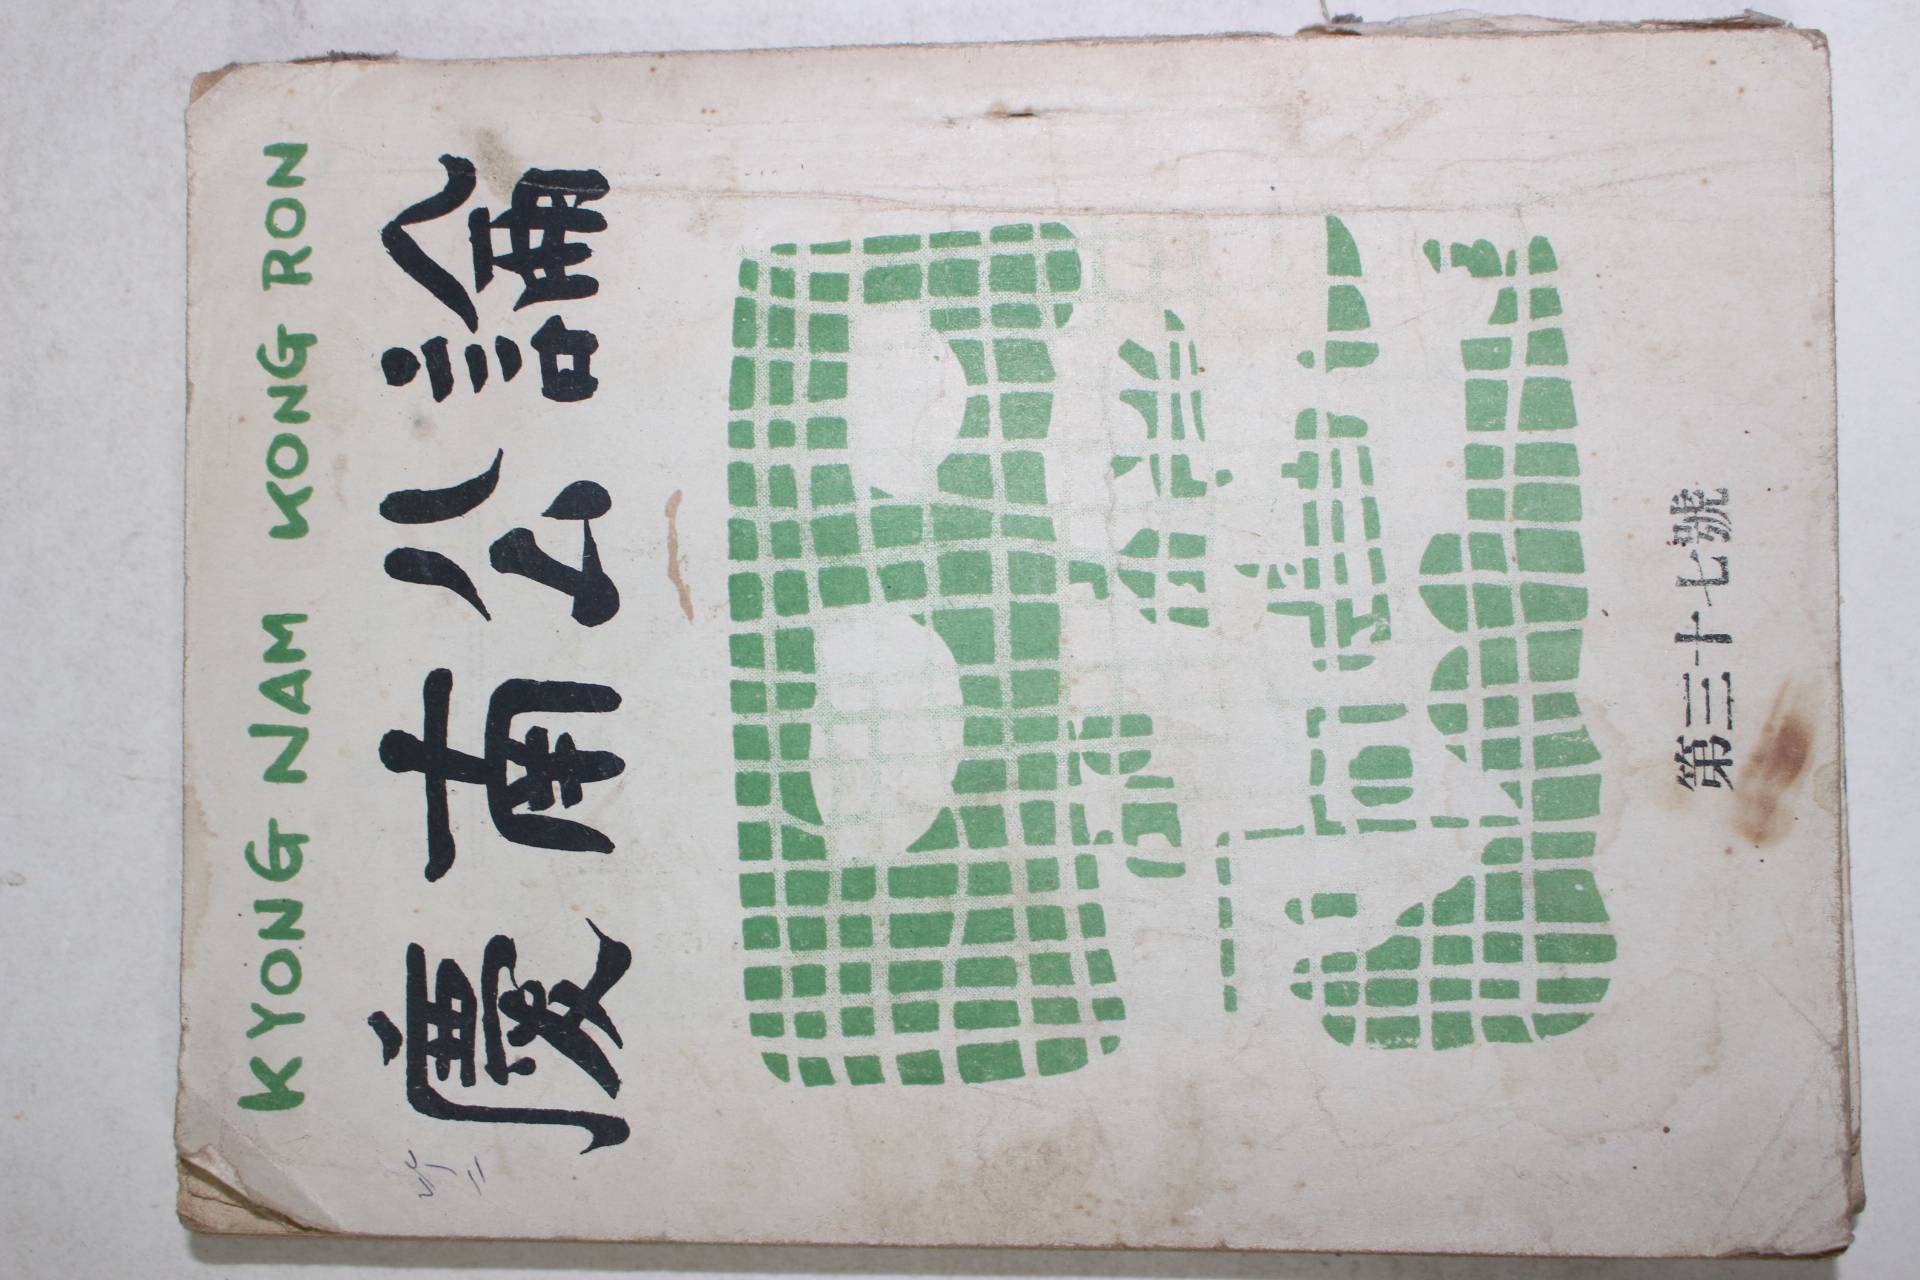 KYONG NAM KONG RON
慶南公論
第三十七號